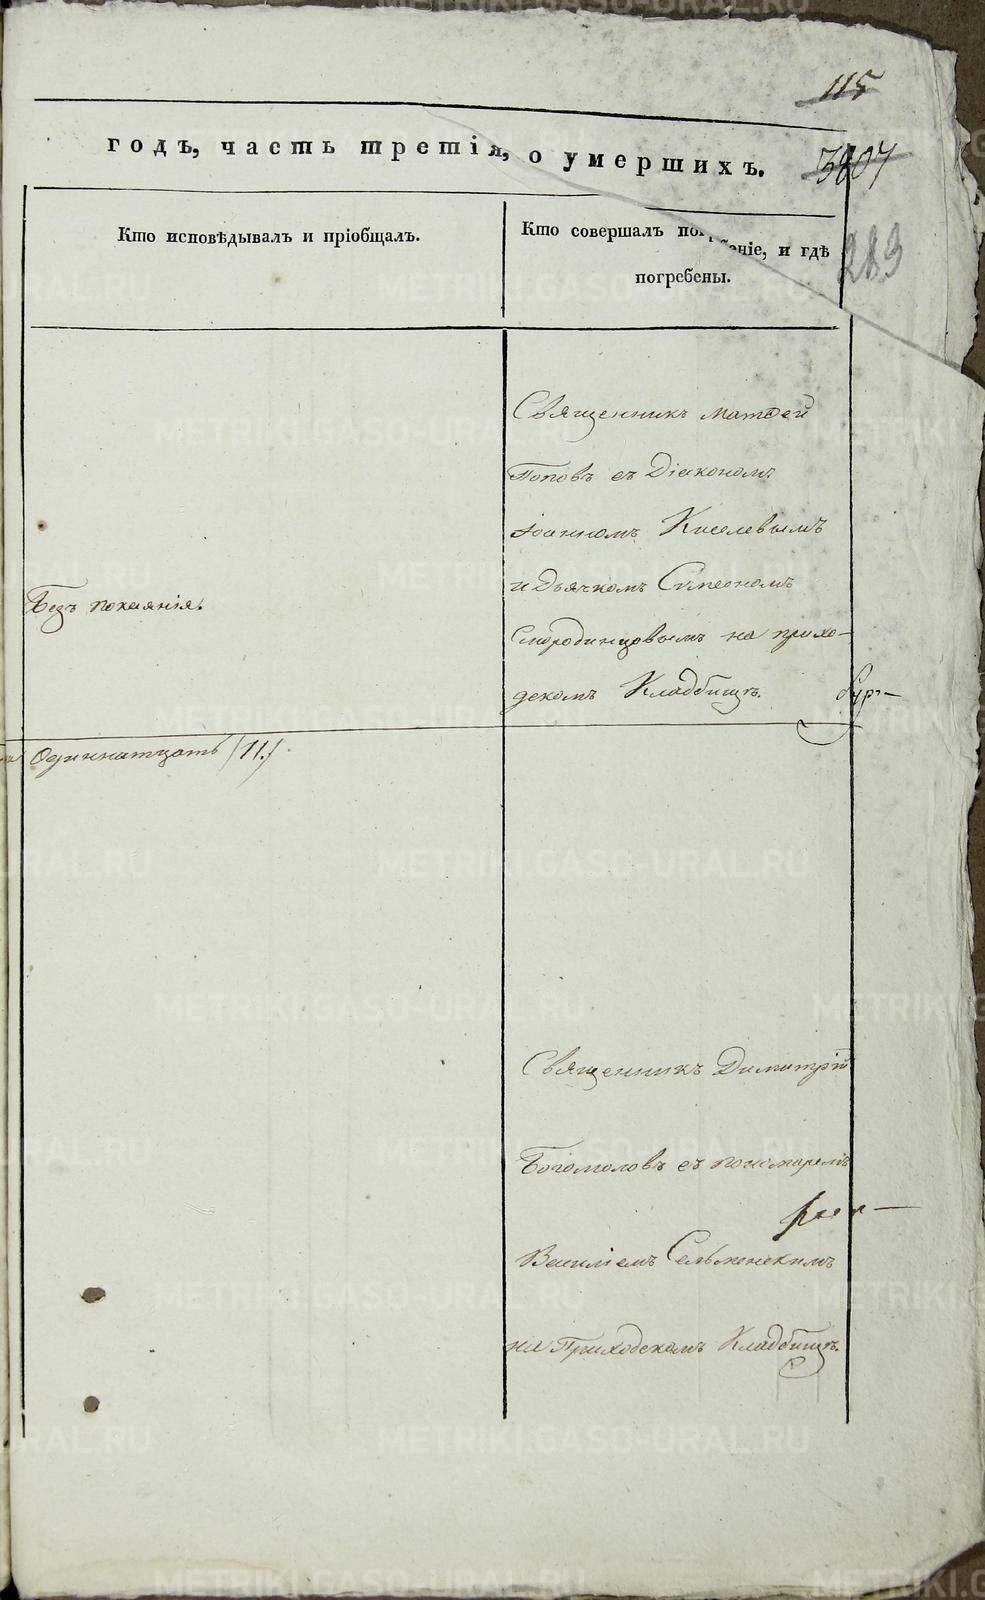 115
годъ, часть третія, о умершихъ.
3807
289
Кто исповѣдывалъ и пріобщалъ.
Кто совершалъ погребеніе, и гдѣ
погребены.
Священникъ Матѳей
Поповъ съ Діакономъ
Іоанномъ Киселевымъ
и Дьячкомъ Сѵмеономъ
Безъ покаянія.
Смородинцовымъ на прихо-
дскомъ Кладбищѣ.
Одиннатцать /11./
Священникъ Димитрій
Богомоловъ съ пономаремъ
Василіемъ
на Приходскомъ Кладбищѣ.
METRIKI.GASO-URAL.RU